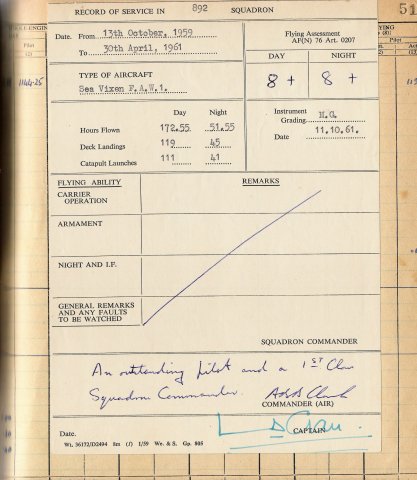 RECORD OF SERVICE IN 892 SQUADRON
51
Date. From 13th October, 1959
To 30th April, 1961
Flying Assessment
AF(N) 76 Art. 0207
DAY NIGHT
8 + 8 +
TYPE OF AIRCRAFT
Sea Vixen F.A.W.1.
Day Night
Hours Flown 172.55 51.55
Deck Landings 119 45
Catapult Launches 111 41
Instrument
Grading M.G.
Date 11.10.61.
FLYING ABILITY REMARKS
CARRIER
OPERATION
ARMAMENT
NIGHT AND I.F.
GENERAL REMARKS
AND ANY FAULTS
TO BE WATCHED
SQUADRON COMMANDER
An outstanding pilot and a 1ST Class
Squadron Commander.
COMMANDER (AIR)
CAPTAIN
Date.
Wt. 36172/D2494 8m (1) 1/59 We. & S. Gp. 805
Pilot
1144-25
Pilot